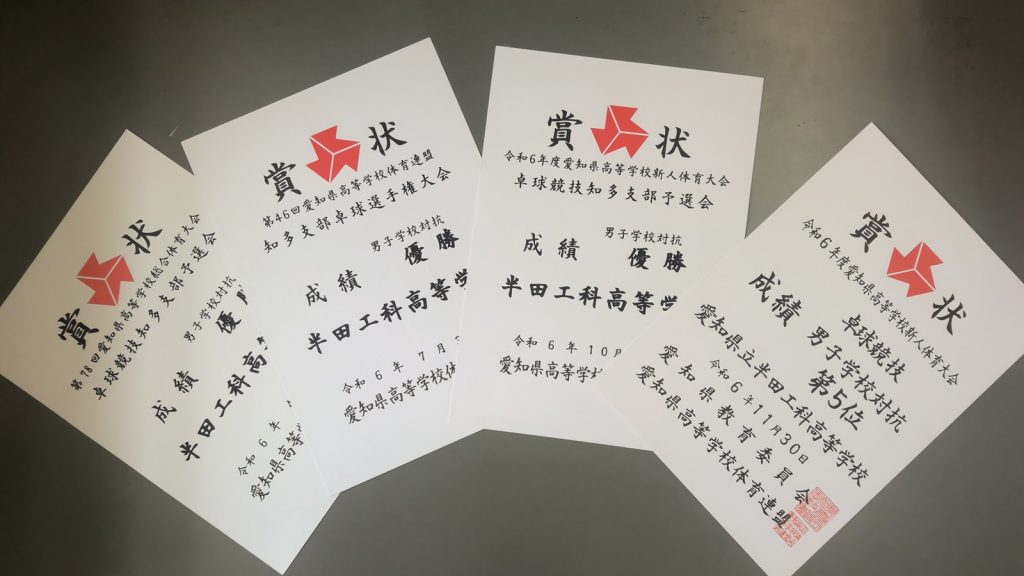 賞 状
第78回愛知県高等学校総合体育大会
卓球競技知多支部予選会
男子学校対抗
成績 優
半田工科高
令和 6 年
愛知県高等
賞 状
第46回愛知県高等学校体育連盟
知多支部卓球選手権大会
男子学校対抗
成績 優勝
半田工科高等学
令和 6 年 7月
愛知県高等学校体
賞 状
令和6年度愛知県高等学校新人体育大会
卓球競技知多支部予選会
男子学校対抗
成績 優勝
半田工科高等学
令和 6 年 10月
愛知県高等学校
賞 状
令和6年度愛知県高等学校新人体育大会
卓球競技
成績 男子学校対抗
第5位
愛知県立半田工科高等学校
令和6年11月30日
愛知県教育委員会
愛知県高等学校体育連盟